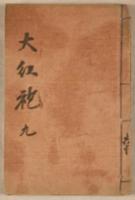 大紅袍 九